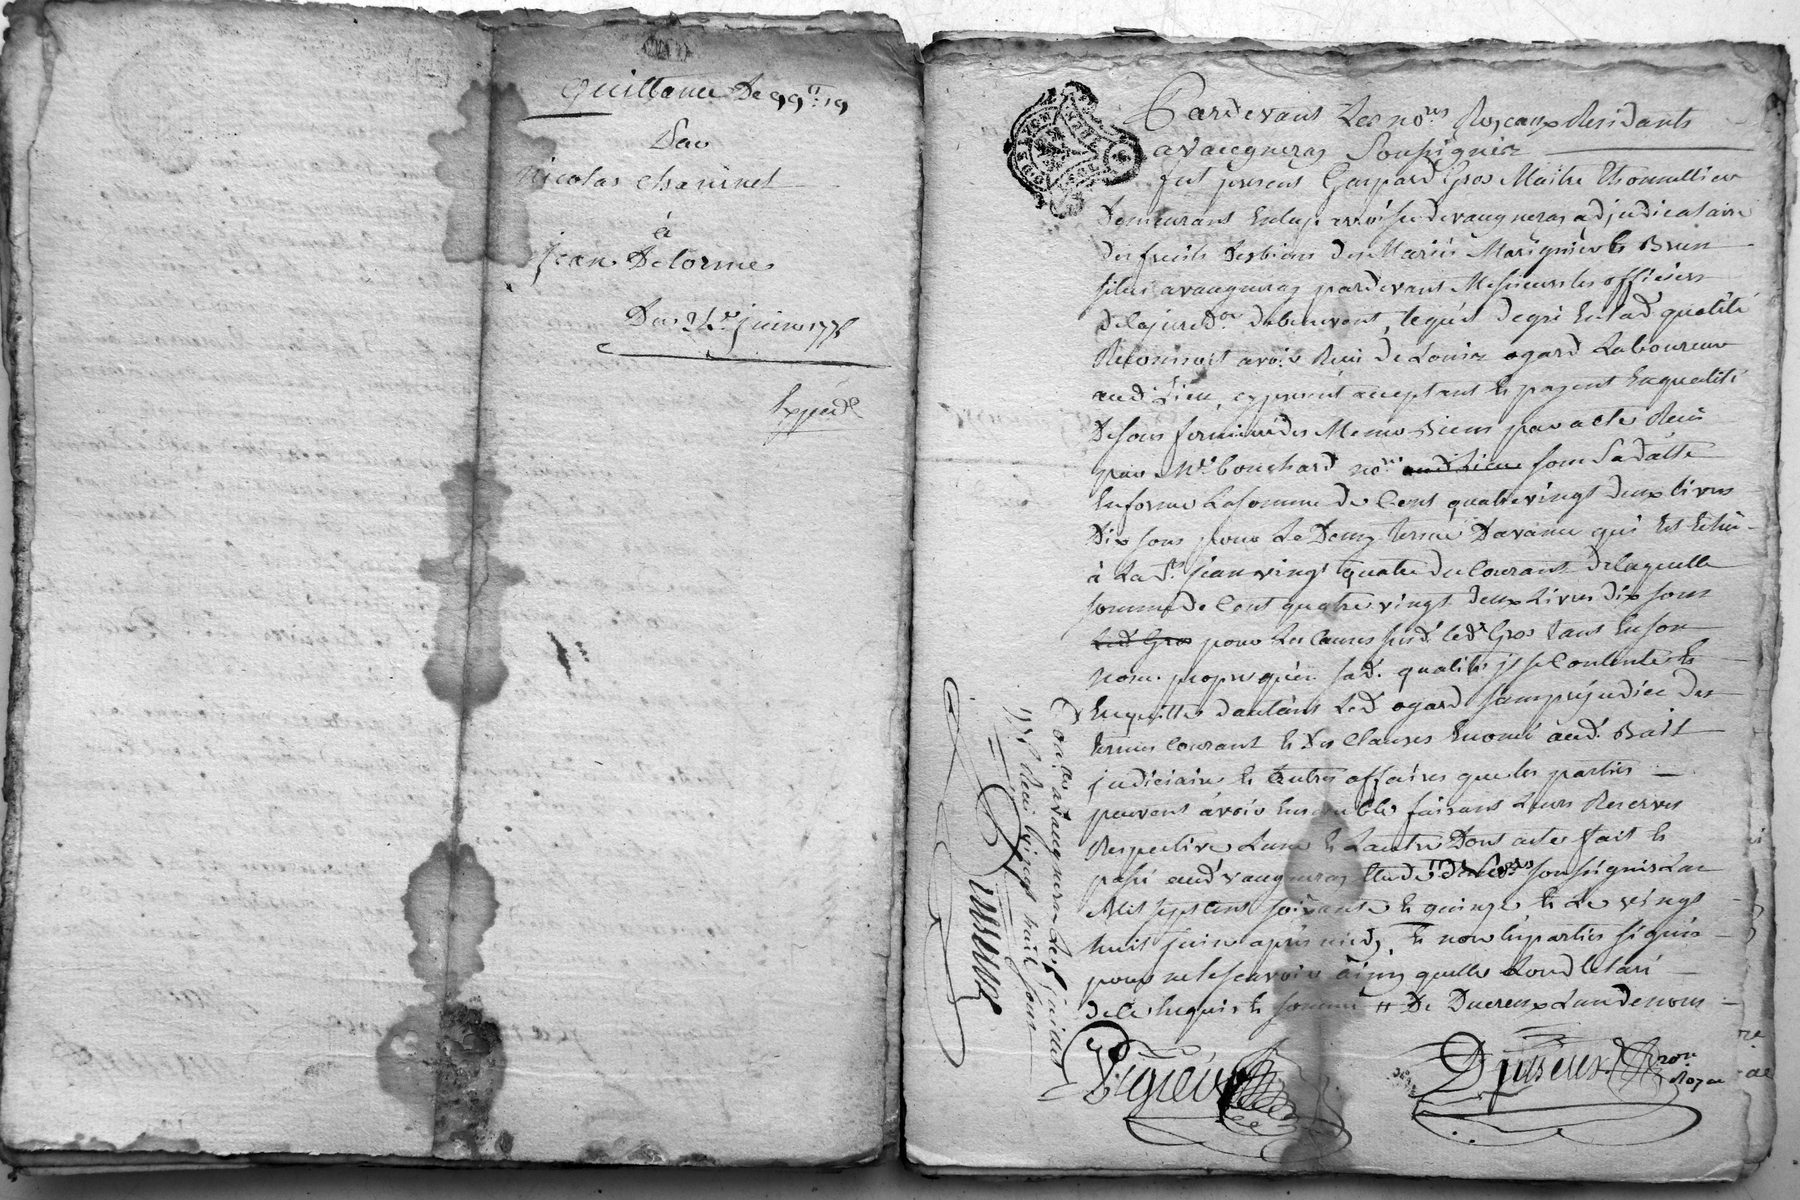 quittance De 99ll 19
Par
Nicolas chavinet
à
jean Delorme
Du 24e juin 1775
Expédé
Pardevant Les nores Royeaux Residants
a vaugneray Soussignés
fut present Gaspard Gros Maitre thonnellier
Demeurant En la parroisse de vaugneray adjudicataire
des fruits des biens des Mariés Marignier et Brun
situés a vaugneray pardevant Messieurs les officiers
de la juredon lequel de gré En lad qualité
Reconnoit avoir Reçu de Louis ogard Laboureur
aud Lieu, cy present acceptant et payant En qualité
De sous fermier des Memes Biens par acte Reçu
par Me bouchard nore aud Lieu sous Sa datte
En forme La somme de Cent quatre vingt deux livres
Dix sous pour Le Demy terme D'avance qui Est Echu
à La St jean vingt quatre du Courant de laquelle
somme de Cent quatre vingt deux Livres dix sous
Led Gros pour Les Causes susd led Gros tant En son
nom propre qu'en sad. qualité se Contente Et
En quitte d'autant Led ogard sans prejudice du
terme Courant Et des Clauses aud. Bail
judiciaire Et autres affaires que les parties
peuvent avoir Ensemble faisant Leurs Reserves
Respective Lune Et Lautre Dont acte fait Et
passé aud vaugneray Etude soussignés Lan
Mil sept Cent soixante Et quinze Et Le vingt
huit juin après midy, Et non les parties signé
pour ne le sçavoir ainsy quelles L'ont declaré
de ce Enquis Et sommé De Ducreux L'un de nous
Conllé a vaugneray Le juillet
1775 Reçu sept huit sous